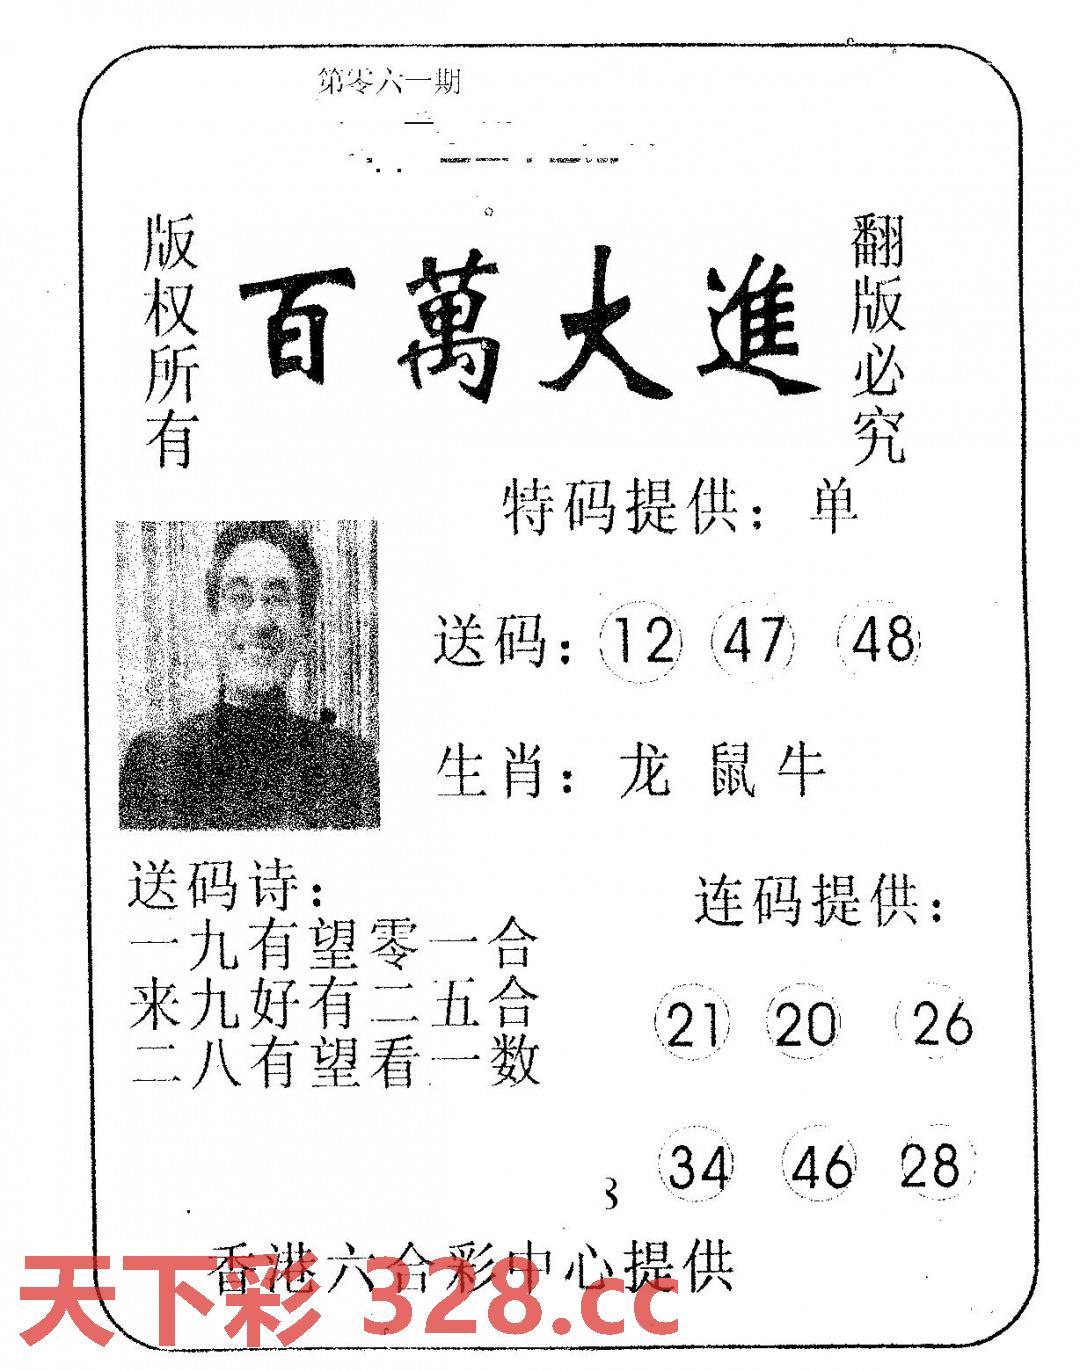 第零六一期
版权所有
百萬大進
翻版必究
特码提供：单
送码：12 47 48
生肖：龙 鼠 牛
送码诗：
一九有望零一合
来九好有二五合
二八有望看一数
连码提供：
21 20 26
34 46 28
香港六合彩中心提供
天下彩 328.cc